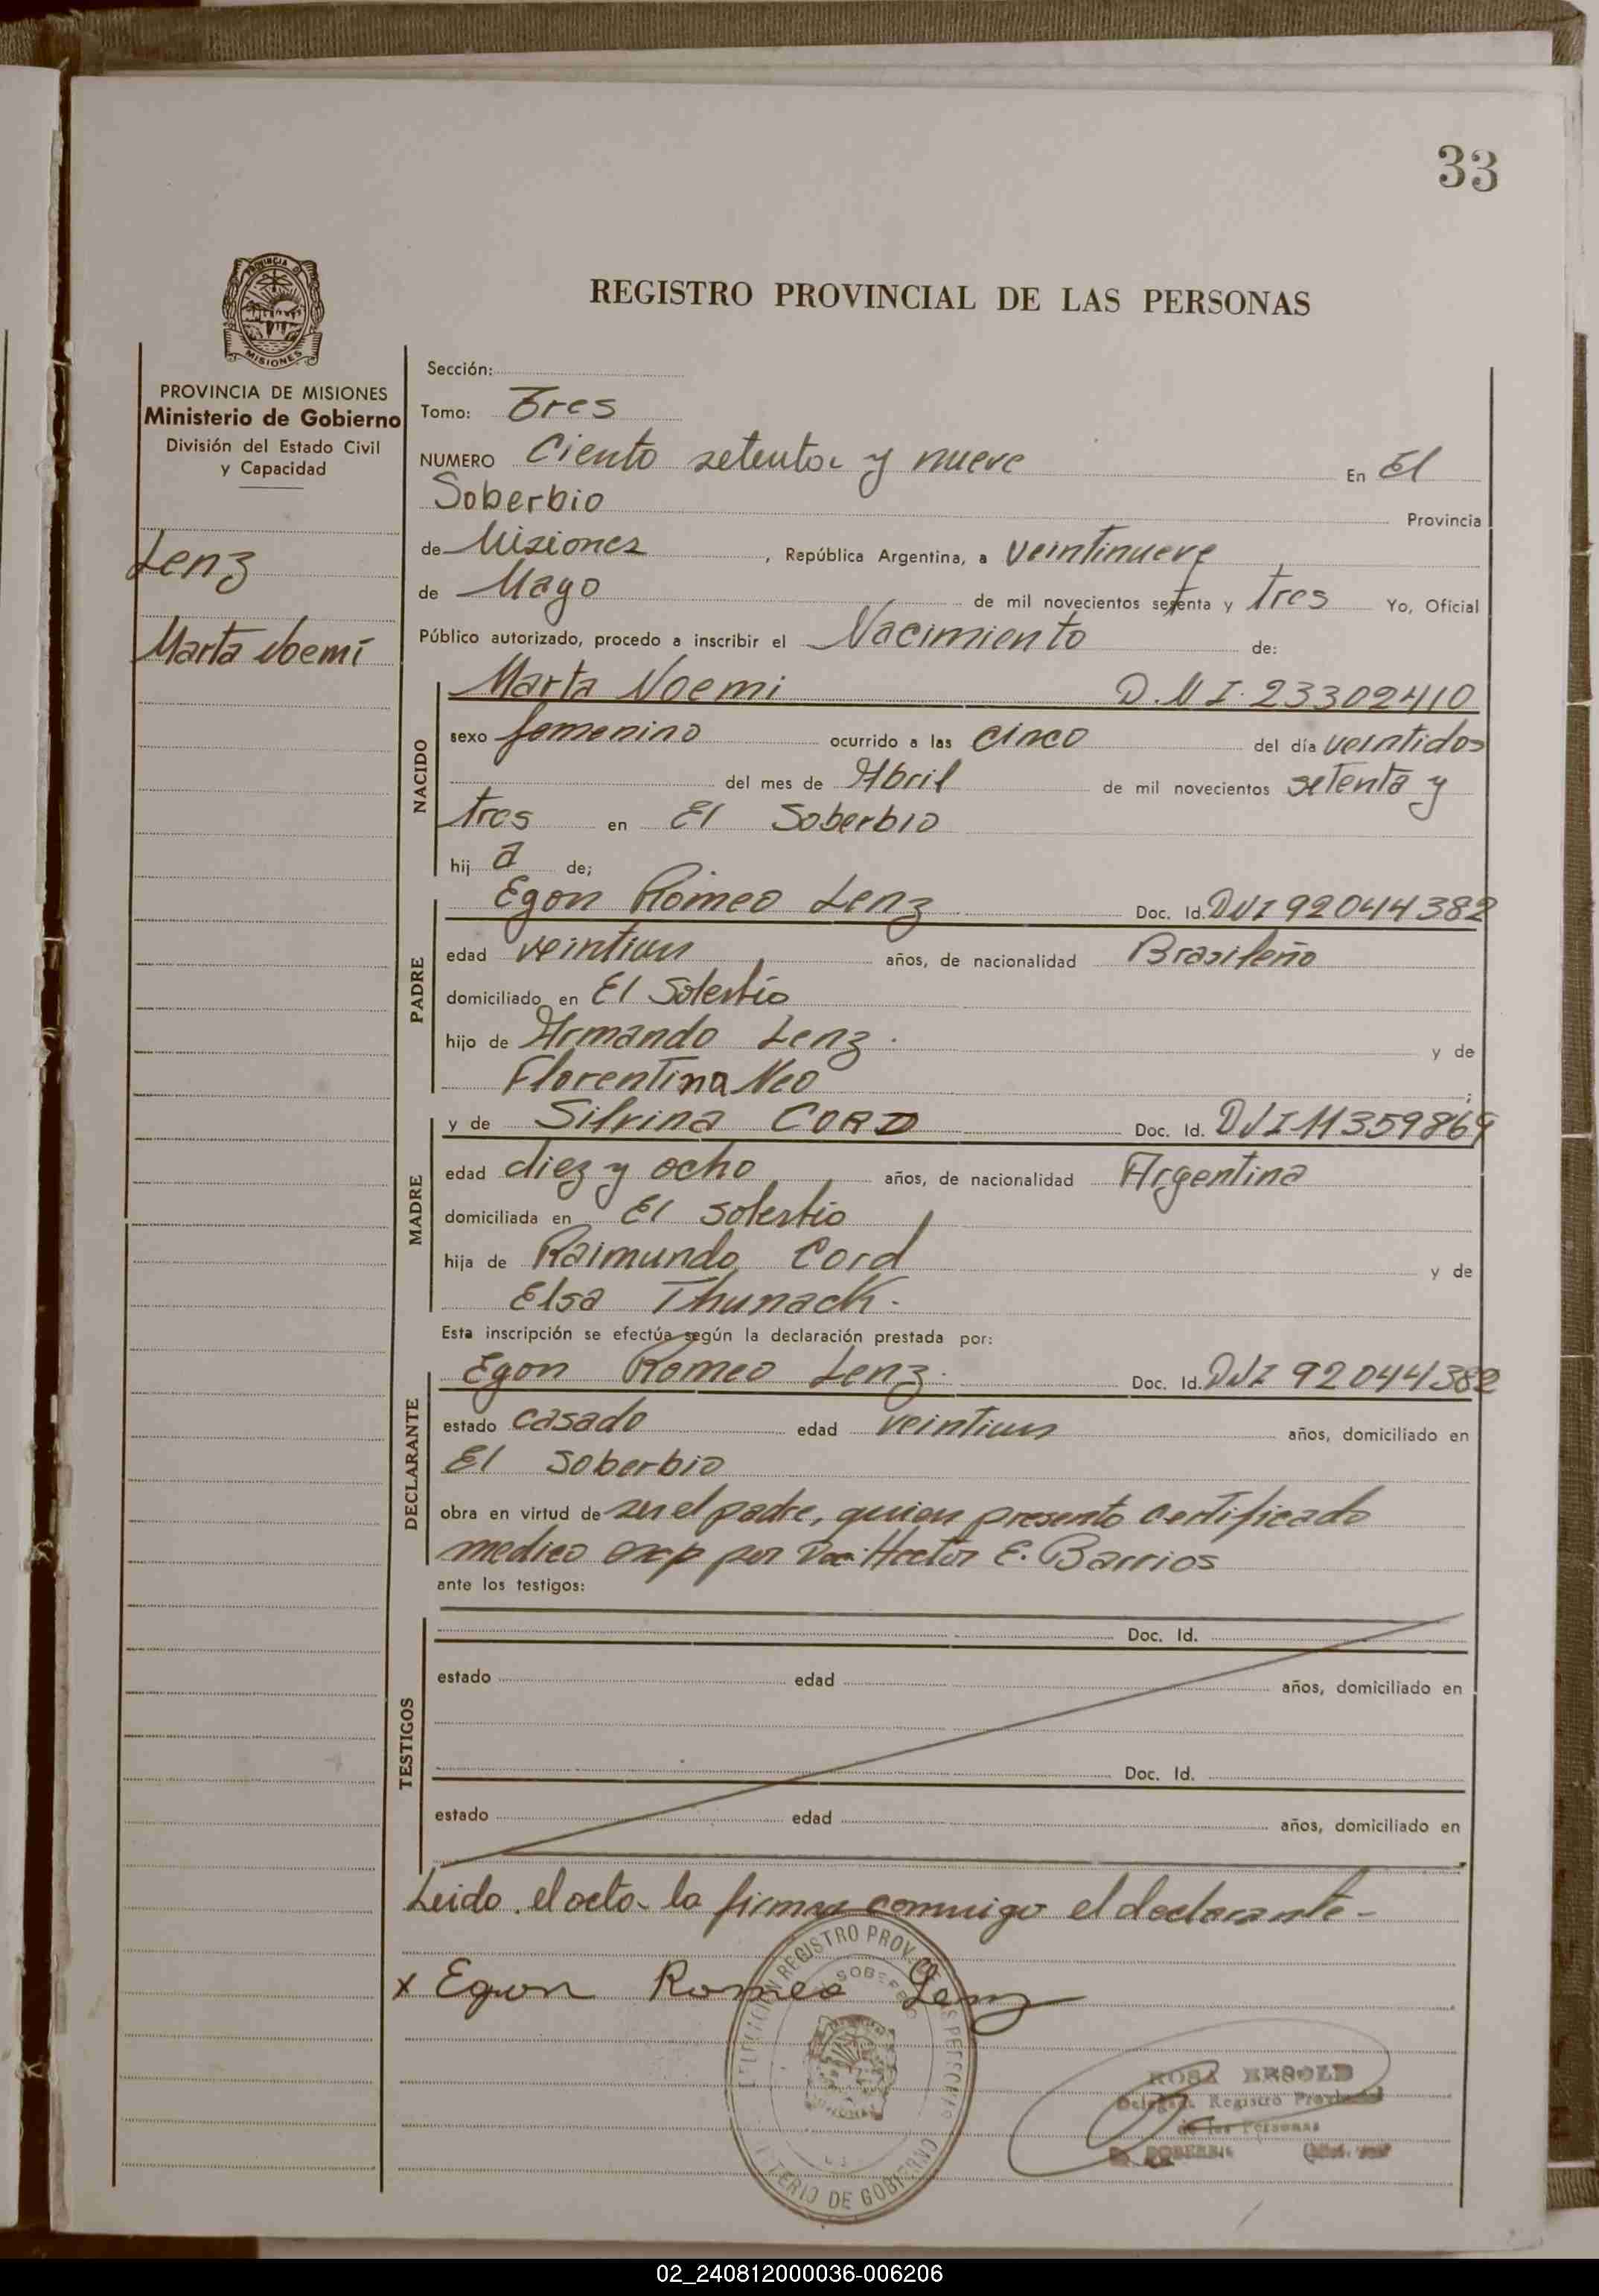 33
PROVINCIA DE
MISIONES
REGISTRO PROVINCIAL DE LAS PERSONAS
PROVINCIA DE MISIONES
Ministerio de Gobierno
División del Estado Civil
y Capacidad
Lenz
Marta Noemí
Sección:
Tomo: Tres
NUMERO Ciento setenta y nueve En El
Soberbio Provincia
de Misiones, República Argentina, a veintinueve
de Mayo de mil novecientos setenta y tres Yo, Oficial
Público autorizado, procedo a inscribir el Nacimiento de:
NACIDO
Marta Noemi D.N.I. 23302410
sexo femenino ocurrido a las cinco del día veintidos
del mes de Abril de mil novecientos setenta y
tres en El Soberbio
hij a de;
PADRE
Egon Romeo Lenz Doc. Id. DNI 92044382
edad veintiun años, de nacionalidad Brasileño
domiciliado en El Soberbio
hijo de Armando Lenz. y de
Florentina Neo ;
MADRE
y de Silvina CORD Doc. Id. DNI 11359869
edad diez y ocho años, de nacionalidad Argentina
domiciliada en El Soberbio
hija de Raimundo Cord y de
Elsa Thunack.
Esta inscripción se efectúa según la declaración prestada por:
DECLARANTE
Egon Romeo Lenz. Doc. Id. DNI 92044382
estado casado edad veintiun años, domiciliado en
El Soberbio
obra en virtud de ser el padre, quien presento certificado
medico exp por Doc. Hector E. Barrios
ante los testigos:
TESTIGOS
Doc. Id.
estado edad años, domiciliado en
Doc. Id.
estado edad años, domiciliado en
Leido el acta la firma conmigo el declarante-
x Egon Romeo Lenz
REGISTRO PROV. PERSONAS
SOBERBIO
DE GOBIERNO
ROSA
Registro Provincial
de las Personas
SOBERBIO
02_240812000036-006206